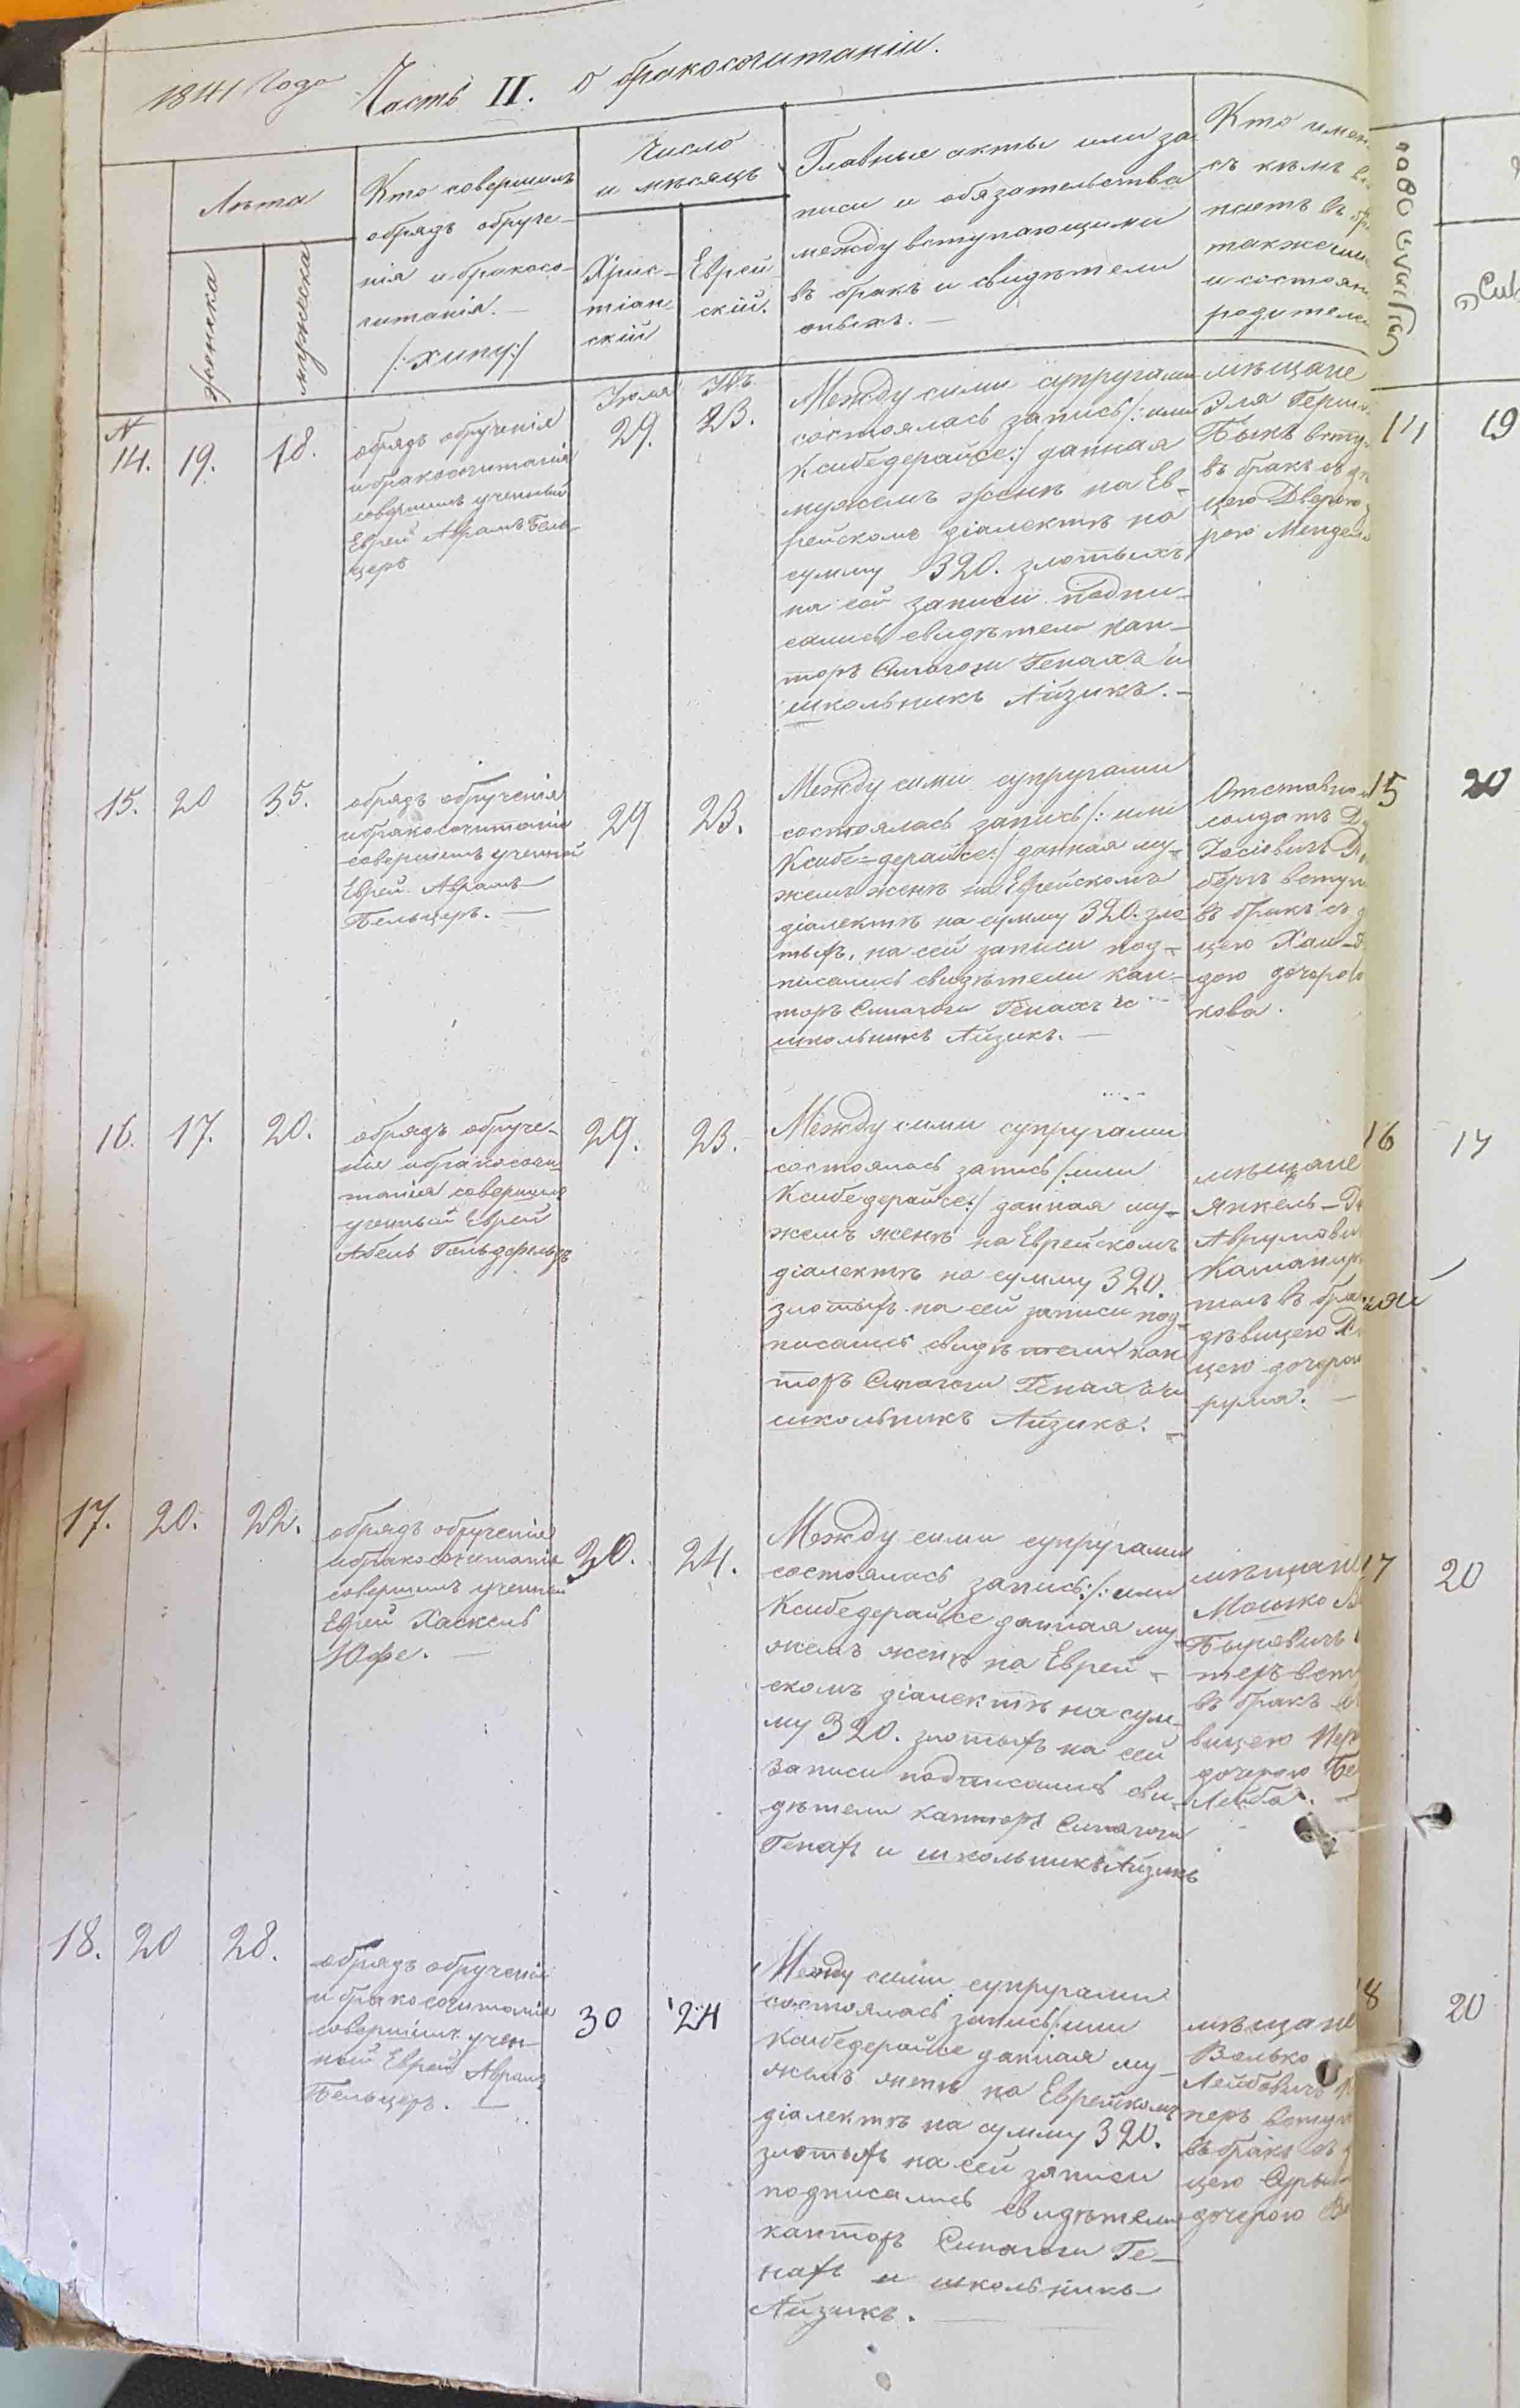 1841 Года Часть II. О бракосочитаніи.
Лѣта
женска
мужеска
Кто совершилъ
обрядъ обруче-
нія и бракосо-
читанія. —
/:Хипу:/
Число
и мѣсяцъ
Хрис-
тіан-
скій
Еврей
скій.
Главные акты или за-
писи и обязательства
между вступающими
въ бракъ и свидѣтели
оныхъ. —
Кто имен
съ кѣмъ
паетъ въ
также
и состоян
родителе
№
14.
19.
18.
обрядъ обрученія
и бракосочитанія
совершилъ ученный
Еврей Аврамъ Бель-
церъ
Іюля
29.
23.
Между сими супругами
состоялась запись /: или
Ксибедерайсе:/ данная
мужемъ женѣ на Ев-
рейскомъ діалектѣ на
сумму 320. злотыхъ,
на сей записи подпи-
сались свидѣтели кан-
торъ Синагоги Генахъ и
школьникъ Айзикъ. —
мѣщане
Эля Герш
Быкъ всту
въ бракъ съ
цею Дверою
рою Мендел
14
19
15.
20
35.
обрядъ обрученія
и бракосочитанія
совершилъ ученный
Еврей Аврамъ
Бельцеръ. —
29
23.
Между сими супругами
состоялась запись /: или
Ксибе=дерайсе:/ данная му-
жемъ женѣ на Еврейскомъ
діалектѣ на сумму 320. зло-
тыхъ, на сей записи под-
писались свидѣтели кан-
торъ Синагоги Генахъ и
школьникъ Айзикъ. —
Отставно
солдатъ
Іосіовичъ
беръ вступ
въ бракъ съ
цею Хаи-
дою дочерою
кова.
15
20
16.
17.
20.
обрядъ обруче-
нія и бракосочи-
танія совершилъ
ученный Еврей
Абель Гольдфельдъ
29.
23.
Между сими супругами
состоялась запись /: или
Ксибедерайсе:/ данная му-
жемъ женѣ на Еврейскомъ
діалектѣ на сумму 320.
злотыхъ на сей записи под-
писались свидѣтели кан
торъ Синагоги Генахъ и
школьникъ Айзикъ. —
мѣщане
Янкель-
Аврумови
пилъ въ бра
дѣвицею
цею дочерою
16
17
17.
20.
22.
обрядъ обрученія
и бракосочитанія
совершилъ ученный
Еврей Хаскель
Юфе. —
30.
24.
Между сими супругами
состоялась запись:/: или
Ксибедерайсе данная му
жемъ женѣ на Еврей-
скомъ діалектѣ на сум-
му 320. злотыхъ на сей
записи подписались сви-
дѣтели канторъ Синагоги
Генахъ и школьникъ Айзикъ
мѣщане
Мошко
теръ вст
въ бракъ
вицею
дочерою Бе
Лейба. —
17
20
18.
20
28.
обрядъ обрученія
и бракосочитанія
совершилъ учен-
ный Еврей Аврамъ
Бельцеръ. —
30
24
Между сими супругами
состоялась запись /: или
Ксибедерайсе данная му-
жемъ женѣ на Еврейскомъ
діалектѣ на сумму 320.
злотыхъ на сей записи
подписались свидѣтели
канторъ Синагоги Ге-
нахъ и школьникъ
Айзикъ. —
мѣщане
Волько
Лейбовичъ
неръ вступ
въ бракъ съ
цею Суры-
дочерою
18
20